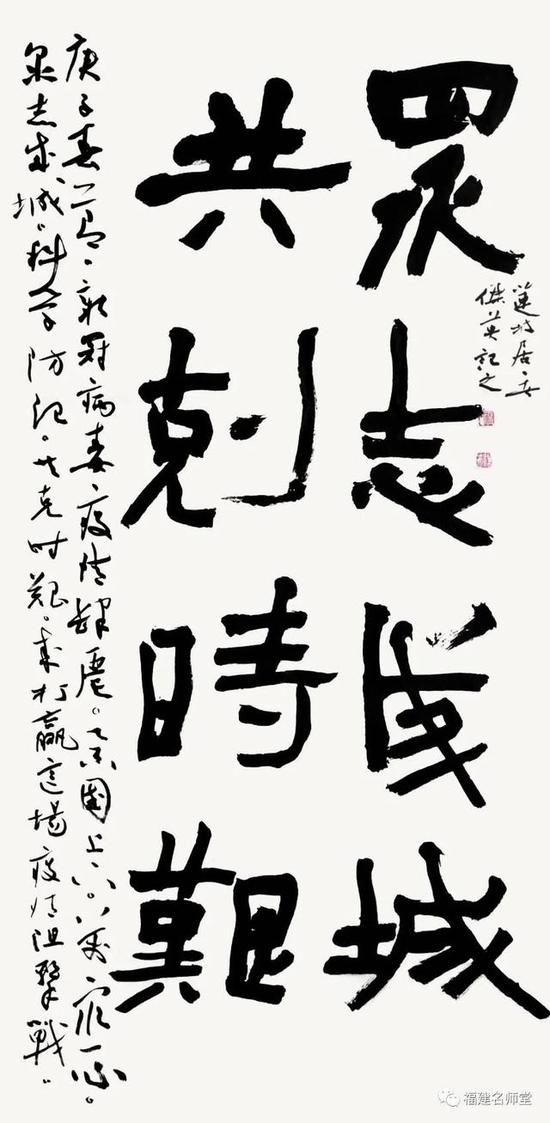 眾志成城
居
傑英記之
共剋時艱
庚子春二月、新冠病毒、疫情肆虐。全國上下、萬眾一心。
眾志成城、科学防犯。共克时艱。来打赢這場疫情阻擊戰。
福建名师堂